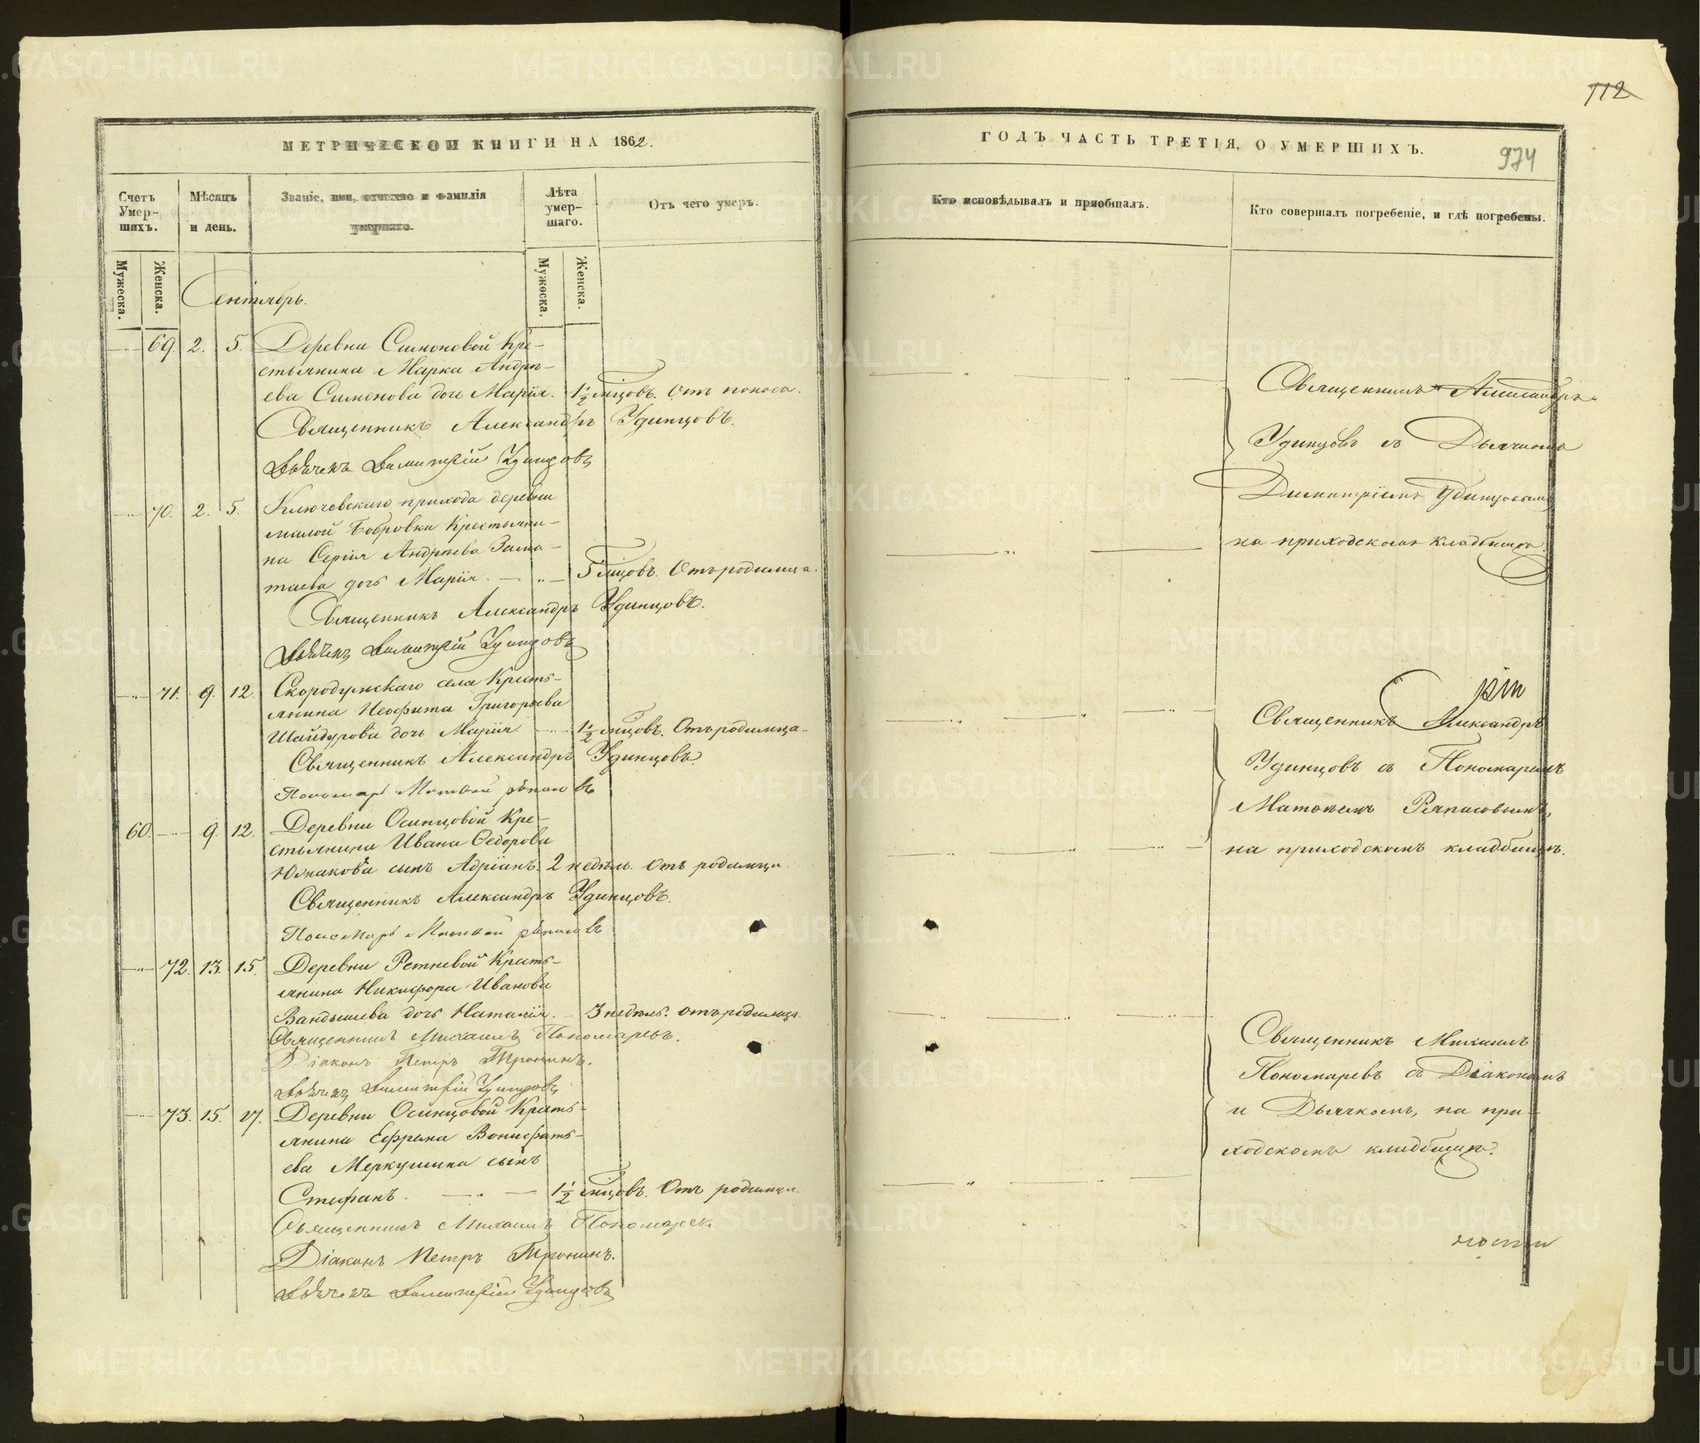 112
МЕТРИЧЕСКОЙ КНИГИ НА 1862.
ГОДЪ ЧАСТЬ ТРЕТІЯ, О УМЕРШИХЪ.
974
Счетъ Умер-шихъ.
Мѣсяцъ и день.
Званіе, имя, отчество и фамилія умершаго.
Лѣта умер-шаго.
Отъ чего умеръ.
Кто исповѣдывалъ и пріобщалъ.
Кто совершалъ погребеніе, и гдѣ погребены.
Мужеска.
Женска.
Мужеска.
Женска.
Сентябрь.
69. 2. 5. Деревни Симоновой Кре-
стьянина Марка Андре-
ева Симонова дочь Марія. 1½ мѣсцовъ. Отъ поноса.
Священникъ Александръ Удинцовъ.
Дьячекъ Димитрій Удинцовъ
70. 2. 5. Ключевскаго прихода деревни
малой Бобровки Крестьяни-
на Сергія Андреева
дочь Марія. 5 мѣсцовъ. Отъ родимца.
Священникъ Александръ Удинцовъ.
Дьячекъ Димитрій Удинцовъ
71. 9. 12. Скородумскаго села Кресть-
янина Неофита Григорьева
Шайдурова дочь Марія 1½ мѣсцовъ. Отъ родимца.
Священникъ Александръ Удинцовъ
Пономарь Матвей
60. 9. 12. Деревни Осинцовой Кре-
стьянина Ивана Федорова
Южакова сынъ Адріанъ. 2 недѣль. Отъ родимца.
Священникъ Александръ Удинцовъ.
Пономарь Матвей
72. 13. 15. Деревни Ретневой Кресть-
янина Никифора Иванова
Вандышева дочь Наталія. 3 недѣль. Отъ родимца.
Священникъ Михаилъ Пономаревъ.
Діаконъ Петръ Тронинъ.
Дьячекъ Димитрій Удинцовъ
73. 15. 17. Деревни Осинцовой Кресть-
янина Ефрема Вонифать-
ева Меркушина сынъ
Стефанъ. 1½ мѣсцовъ. Отъ родимца.
Священникъ Михаилъ Пономаревъ.
Діаконъ Петръ Тронинъ.
Дьячекъ Димитрій Удинцовъ
Священникъ Александръ
Удинцовъ съ Дьячкомъ
Димитріемъ Удинцовымъ
на приходскомъ кладбищѣ.
Священникъ Александръ
Удинцовъ съ Пономаремъ
Матвеемъ
на приходскомъ кладбищѣ.
Священникъ Михаилъ
Пономаревъ съ Діакономъ
и Дьячкомъ, на при-
ходскомъ кладбищѣ.
METRIKI.GASO-URAL.RU